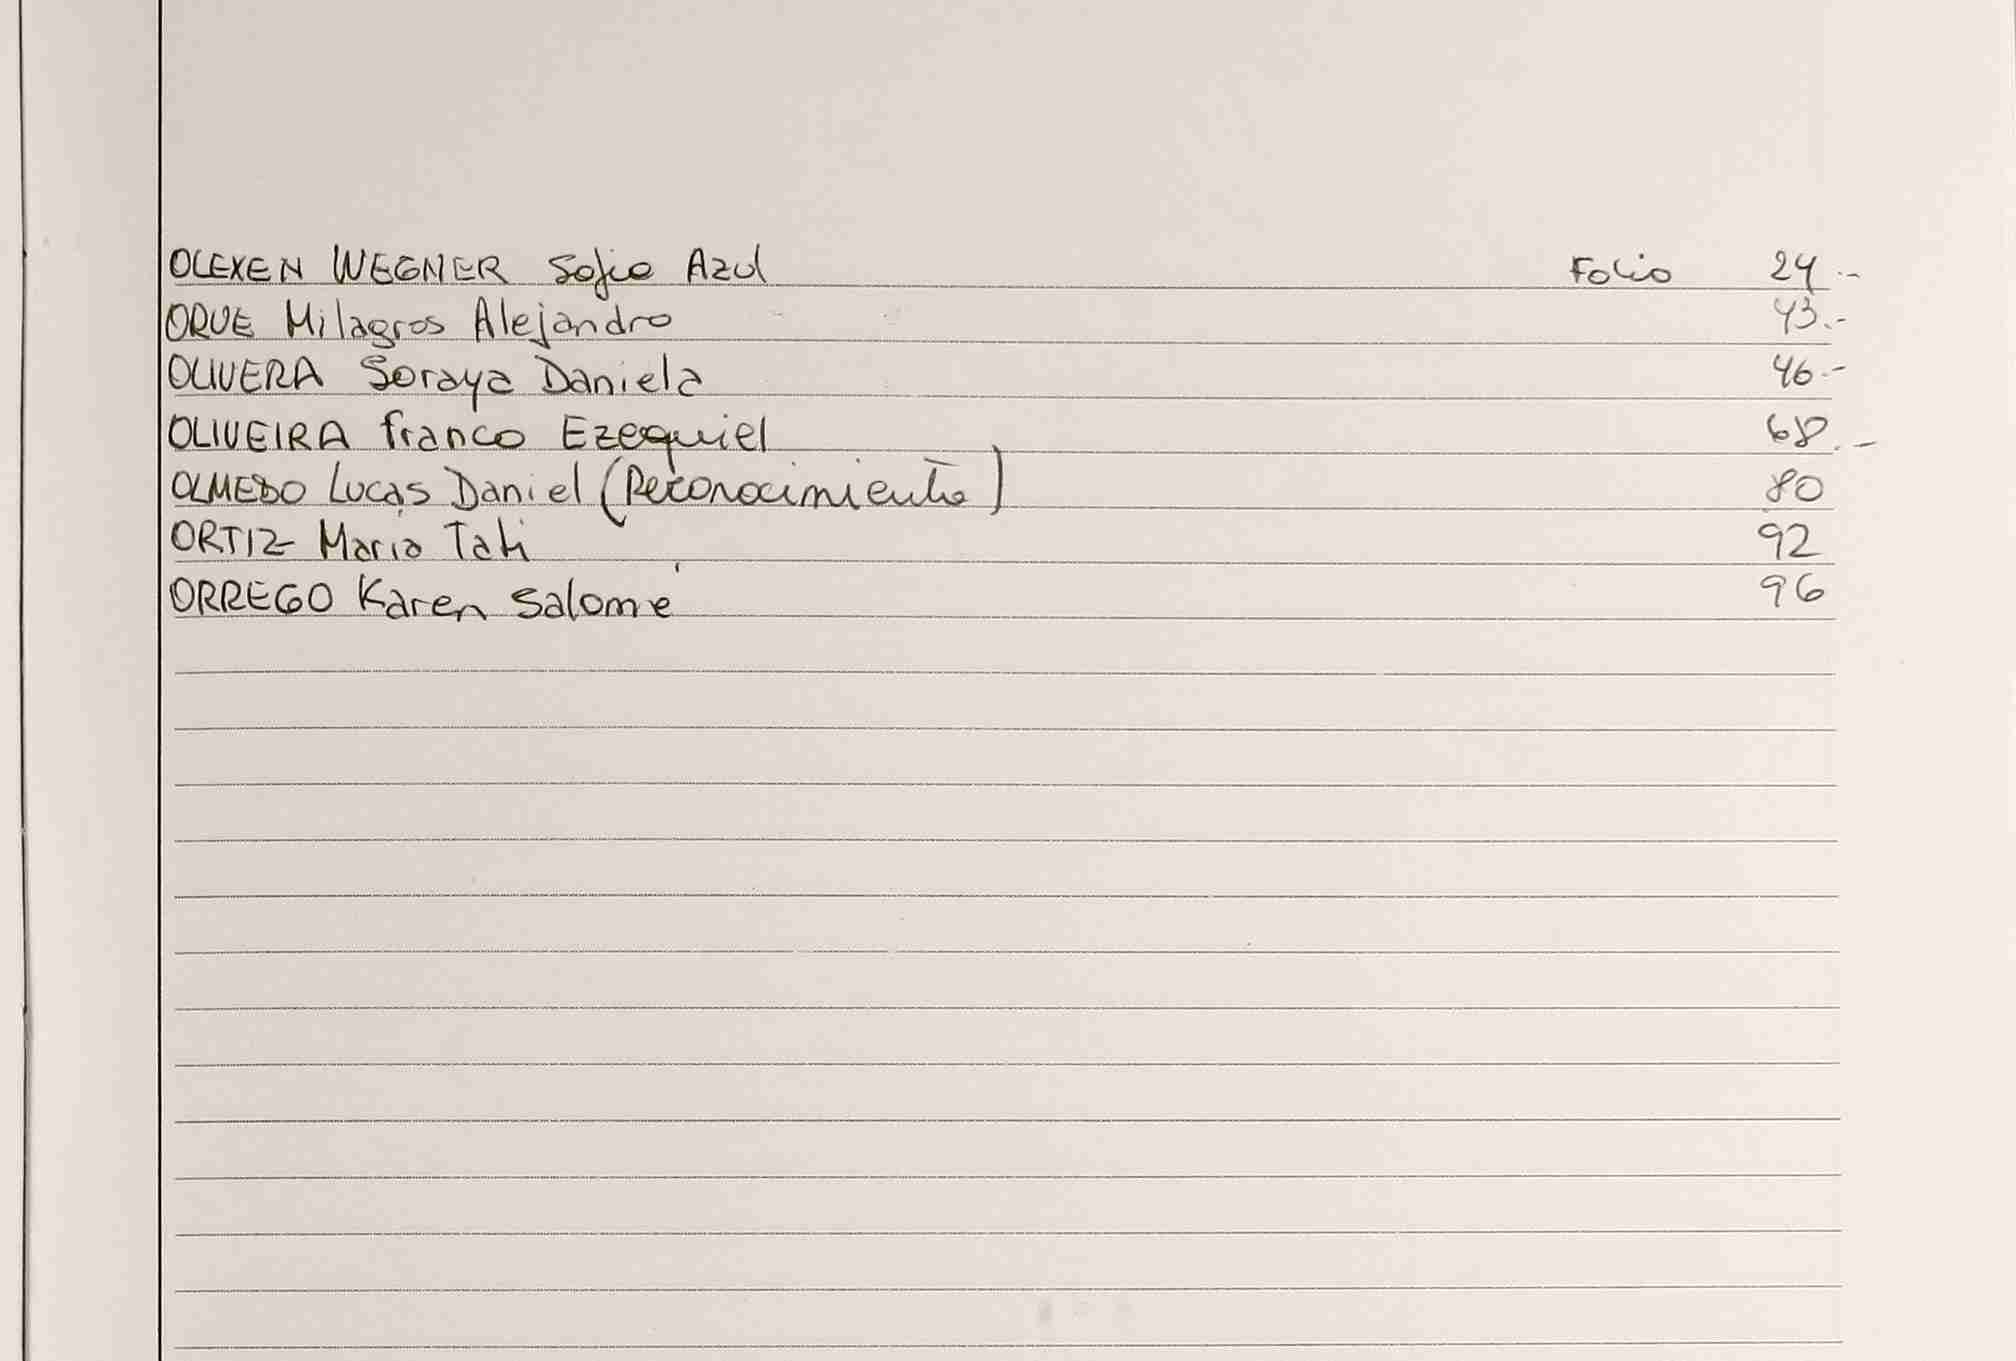 OLEXEN WEGNER Sofia Azul Folio 24.-
ORUE Milagros Alejandro 43.-
OLIVERA Soraya Daniela 46.-
OLIVEIRA Franco Ezequiel 68.-
OLMEDO Lucas Daniel (Reconocimiento) 80
ORTIZ María Tati 92
ORREGO Karen Salomé 96